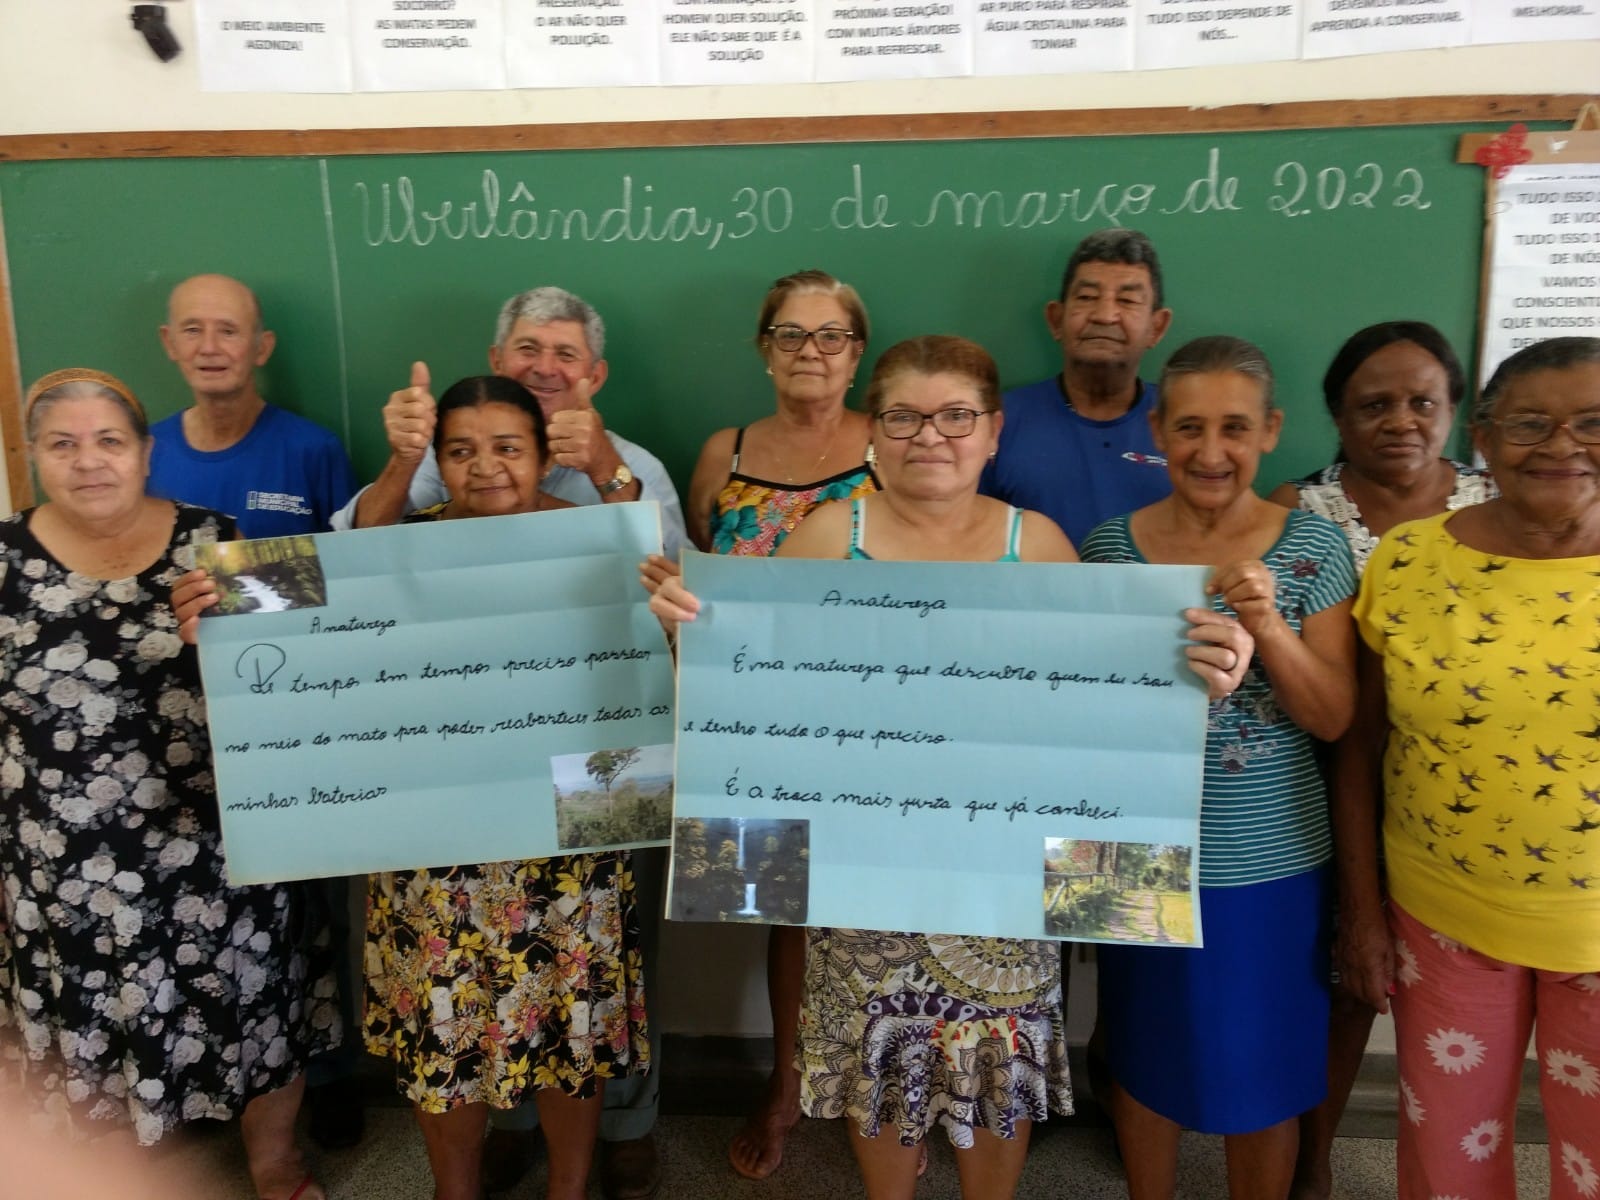 O MEIO AMBIENTE
AGONIZA!
SOCORRO?
AS MATAS PEDEM
CONSERVAÇÃO.
PRESERVAÇÃO.
O AR NÃO QUER
POLUIÇÃO.
HOMEM QUER SOLUÇÃO.
ELE NÃO SABE QUE É A
SOLUÇÃO
PRÓXIMA GERAÇÃO!
COM MUITAS ÁRVORES
PARA REFRESCAR.
AR PURO PARA RESPIRAR.
ÁGUA CRISTALINA PARA
TOMAR
TUDO ISSO DEPENDE DE
NÓS...
APRENDA A CONSERVAR.
MELHORAR...
Uberlândia, 30 de março de 2022
TUDO ISSO
DE VOC
TUDO ISSO D
DE NÓS
VAMOS
CONSCIENTI
QUE NOSSOS
SECRETARIA
MUNICIPAL
DE EDUCAÇÃO
A natureza
De tempos em tempos preciso passear
no meio do mato pra poder reabastecer todas as
minhas baterias
A natureza
É na natureza que descubro quem eu sou
e tenho tudo o que preciso.
É a troca mais justa que já conheci.